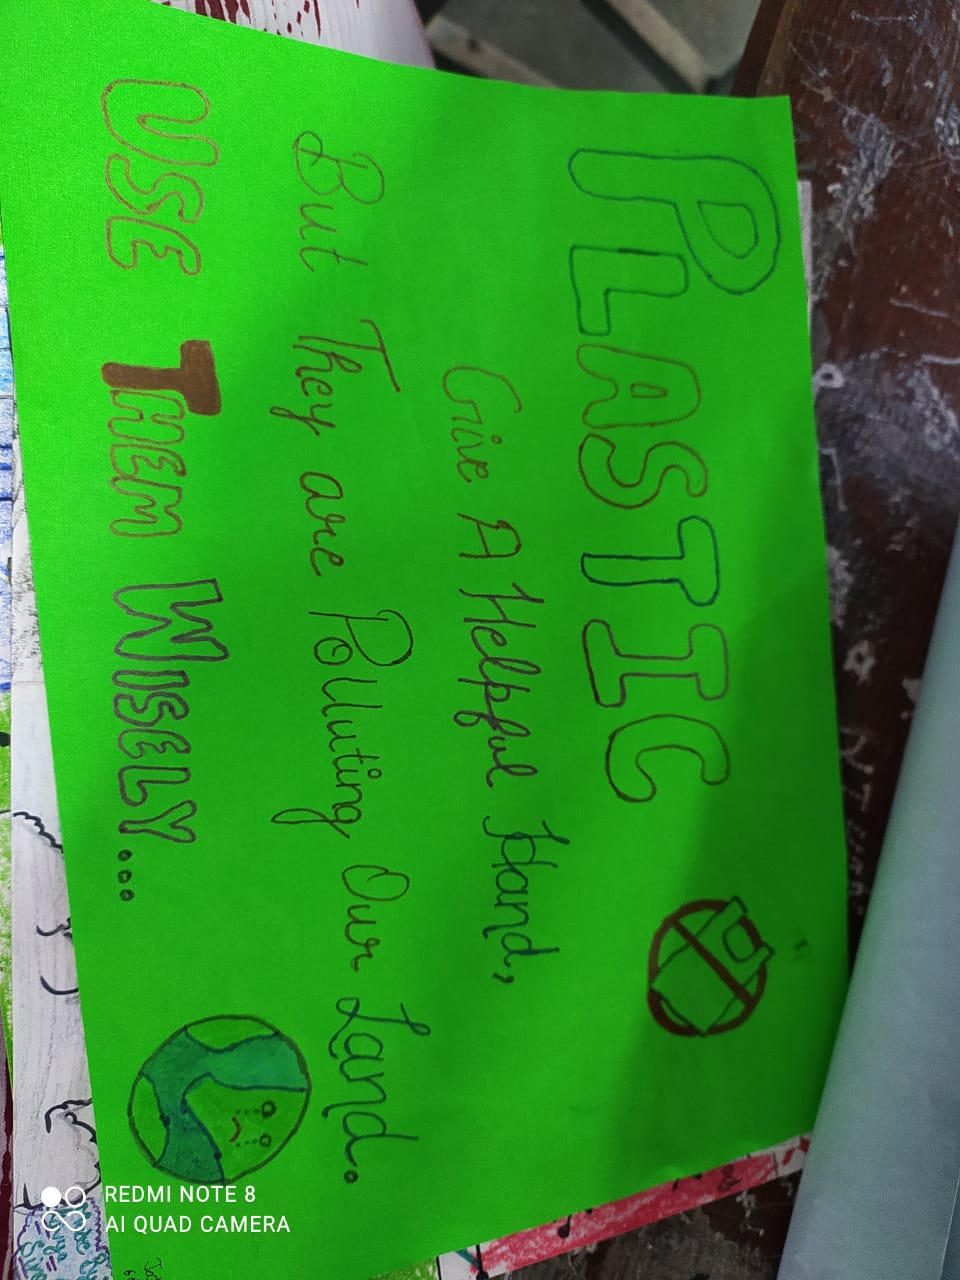 PLASTIC
Give A Helpful Hand,
But They are Polluting Our Land.
USE THEM WISELY....
REDMI NOTE 8
AI QUAD CAMERA